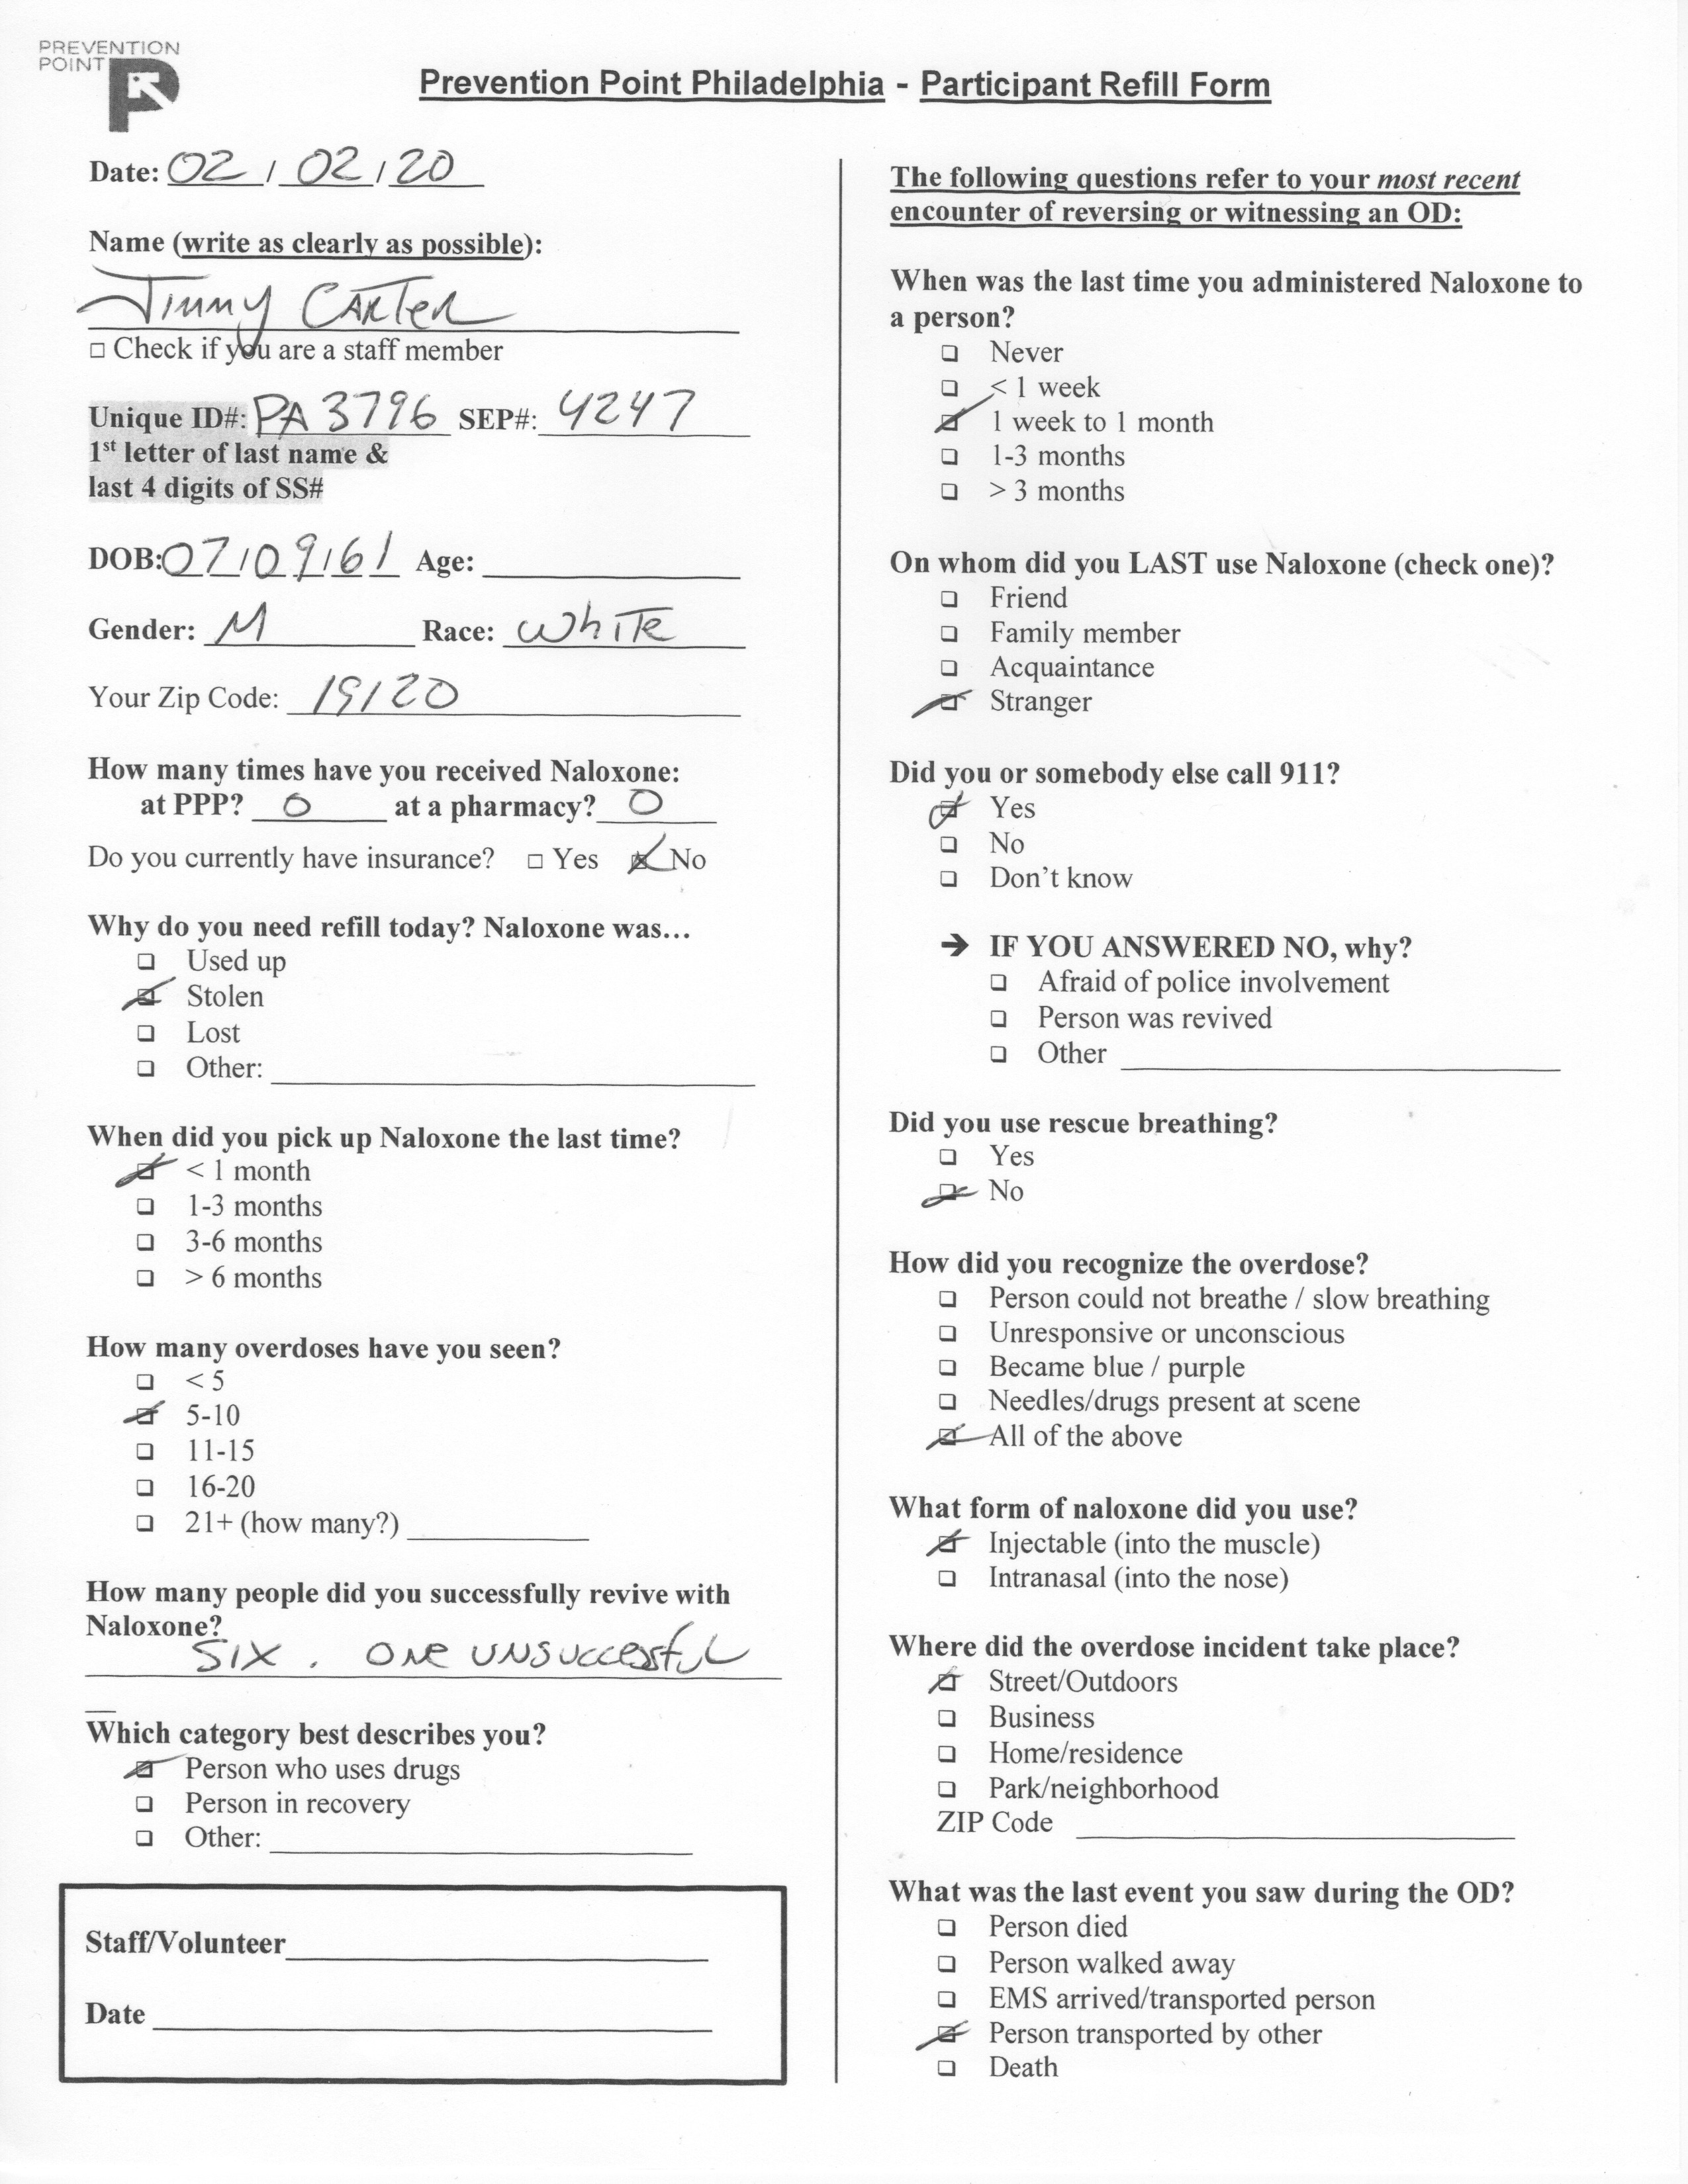 PREVENTION
POINT
Prevention Point Philadelphia - Participant Refill Form
Date: 02 / 02 / 20
Name (write as clearly as possible):
Jimmy Carter
□ Check if you are a staff member
Unique ID#: PA 3796 SEP#: 4247
1st letter of last name &
last 4 digits of SS#
DOB: 07/09/61 Age:
Gender: M Race: White
Your Zip Code: 19120
How many times have you received Naloxone:
at PPP? 0 at a pharmacy? 0
Do you currently have insurance? □ Yes ☒ No
Why do you need refill today? Naloxone was...
❑ Used up
☑ Stolen
❑ Lost
❑ Other:
When did you pick up Naloxone the last time?
☑ < 1 month
❑ 1-3 months
❑ 3-6 months
❑ > 6 months
How many overdoses have you seen?
❑ < 5
☑ 5-10
❑ 11-15
❑ 16-20
❑ 21+ (how many?)
How many people did you successfully revive with
Naloxone?
Six. One unsuccessful
Which category best describes you?
☑ Person who uses drugs
❑ Person in recovery
❑ Other:
Staff/Volunteer
Date
The following questions refer to your most recent
encounter of reversing or witnessing an OD:
When was the last time you administered Naloxone to
a person?
❑ Never
❑ < 1 week
☑ 1 week to 1 month
❑ 1-3 months
❑ > 3 months
On whom did you LAST use Naloxone (check one)?
❑ Friend
❑ Family member
❑ Acquaintance
☑ Stranger
Did you or somebody else call 911?
☑ Yes
❑ No
❑ Don't know
➔ IF YOU ANSWERED NO, why?
❑ Afraid of police involvement
❑ Person was revived
❑ Other
Did you use rescue breathing?
❑ Yes
☑ No
How did you recognize the overdose?
❑ Person could not breathe / slow breathing
❑ Unresponsive or unconscious
❑ Became blue / purple
❑ Needles/drugs present at scene
☑ All of the above
What form of naloxone did you use?
☑ Injectable (into the muscle)
❑ Intranasal (into the nose)
Where did the overdose incident take place?
☑ Street/Outdoors
❑ Business
❑ Home/residence
❑ Park/neighborhood
ZIP Code
What was the last event you saw during the OD?
❑ Person died
❑ Person walked away
❑ EMS arrived/transported person
☑ Person transported by other
❑ Death